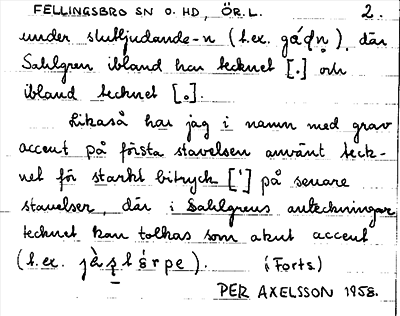 FELLINGSBRO SN O. HD, ÖR. L. 2.
under slutljudande -n (t.ex. gáɖn̥), där
Sahlgren ibland har tecknet [.] och
ibland tecknet [˳].
Likaså har jag i namn med grav
accent på första stavelsen använt teck-
net för starkt bitryck [ˈ] på senare
stavelser, där i Sahlgrens anteckningar
tecknet kan tolkas som akut accent
(t.ex. jàʂlérpe). (Forts)
PER AXELSSON 1958.